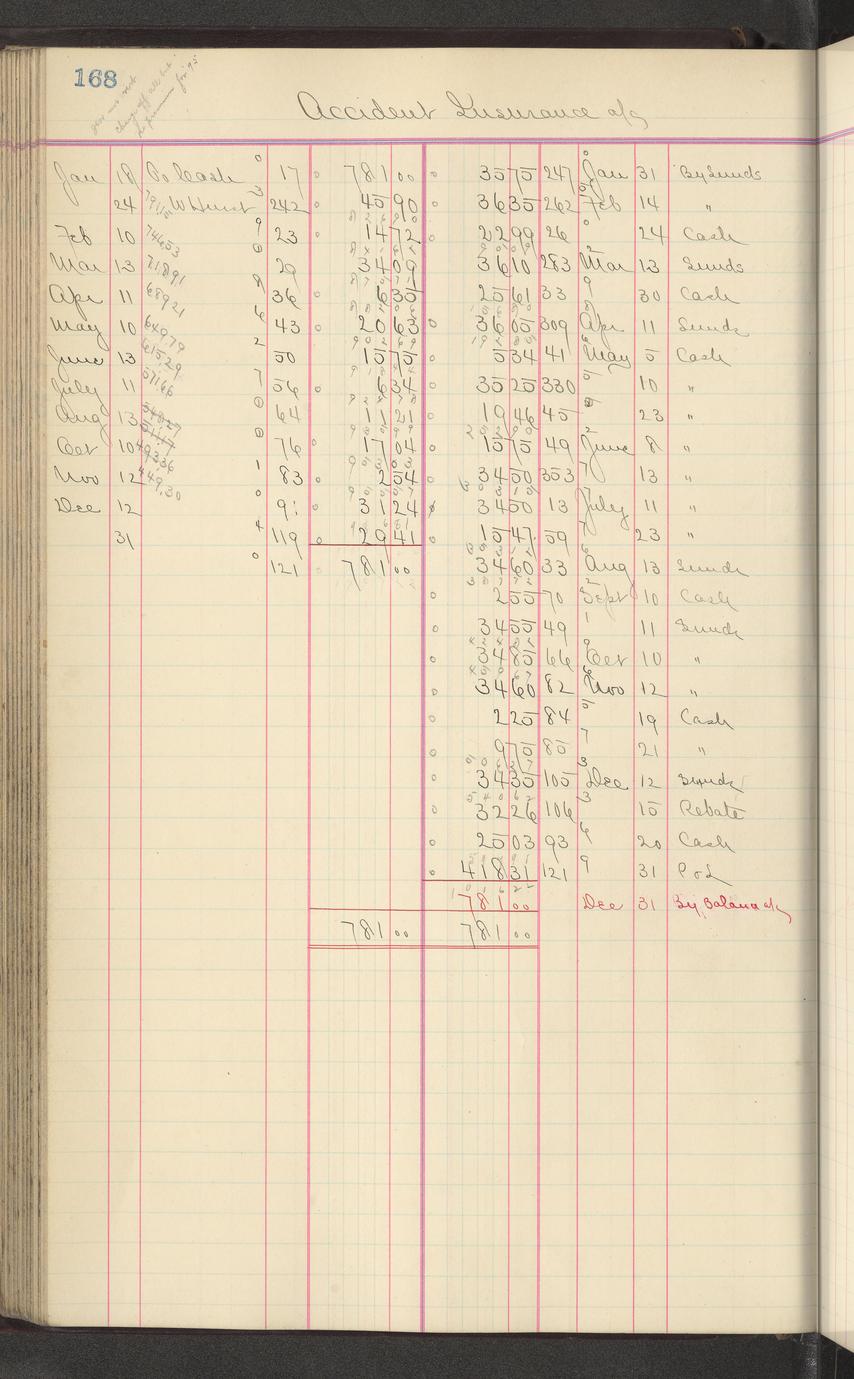 168
Accident Insurance a/c
Jan 18 To Cash 17 781 00 35 75 247 Jan 31 By Sunds
24 W Hurst 242 45 90 36 35 262 Feb 14 "
Feb 10 74653 23 14 72 22 99 26 24 Cash
Mar 13 71891 29 34 09 36 10 283 Mar 13 Sunds
Apr 11 68921 36 6 35 25 61 33 30 Cash
May 10 64979 43 20 63 36 05 309 Apr 11 Sunds
June 13 61529 50 15 75 5 34 41 May 5 Cash
July 11 57166 56 6 34 35 25 330 10 "
Aug 13 64 11 21 19 46 45 23 "
Oct 10 49336 76 17 04 15 75 49 June 8 "
Nov 12 44930 83 2 54 34 50 353 13 "
Dec 12 91 31 24 34 50 13 July 11 "
31 119 29 41 15 47 59 23 "
121 781 00 34 60 33 Aug 13 Sunds
2 55 70 Sept 10 Cash
34 55 49 11 Sunds
34 85 66 Oct 10 "
34 60 82 Nov 12 "
2 25 84 19 Cash
9 75 85 21 "
34 35 105 Dec 12 Sunds
32 26 106 15 Rebate
25 03 93 20 Cash
418 31 121 31 P & L
781 00 Dec 31 By Balance a/c
781 00 781 00